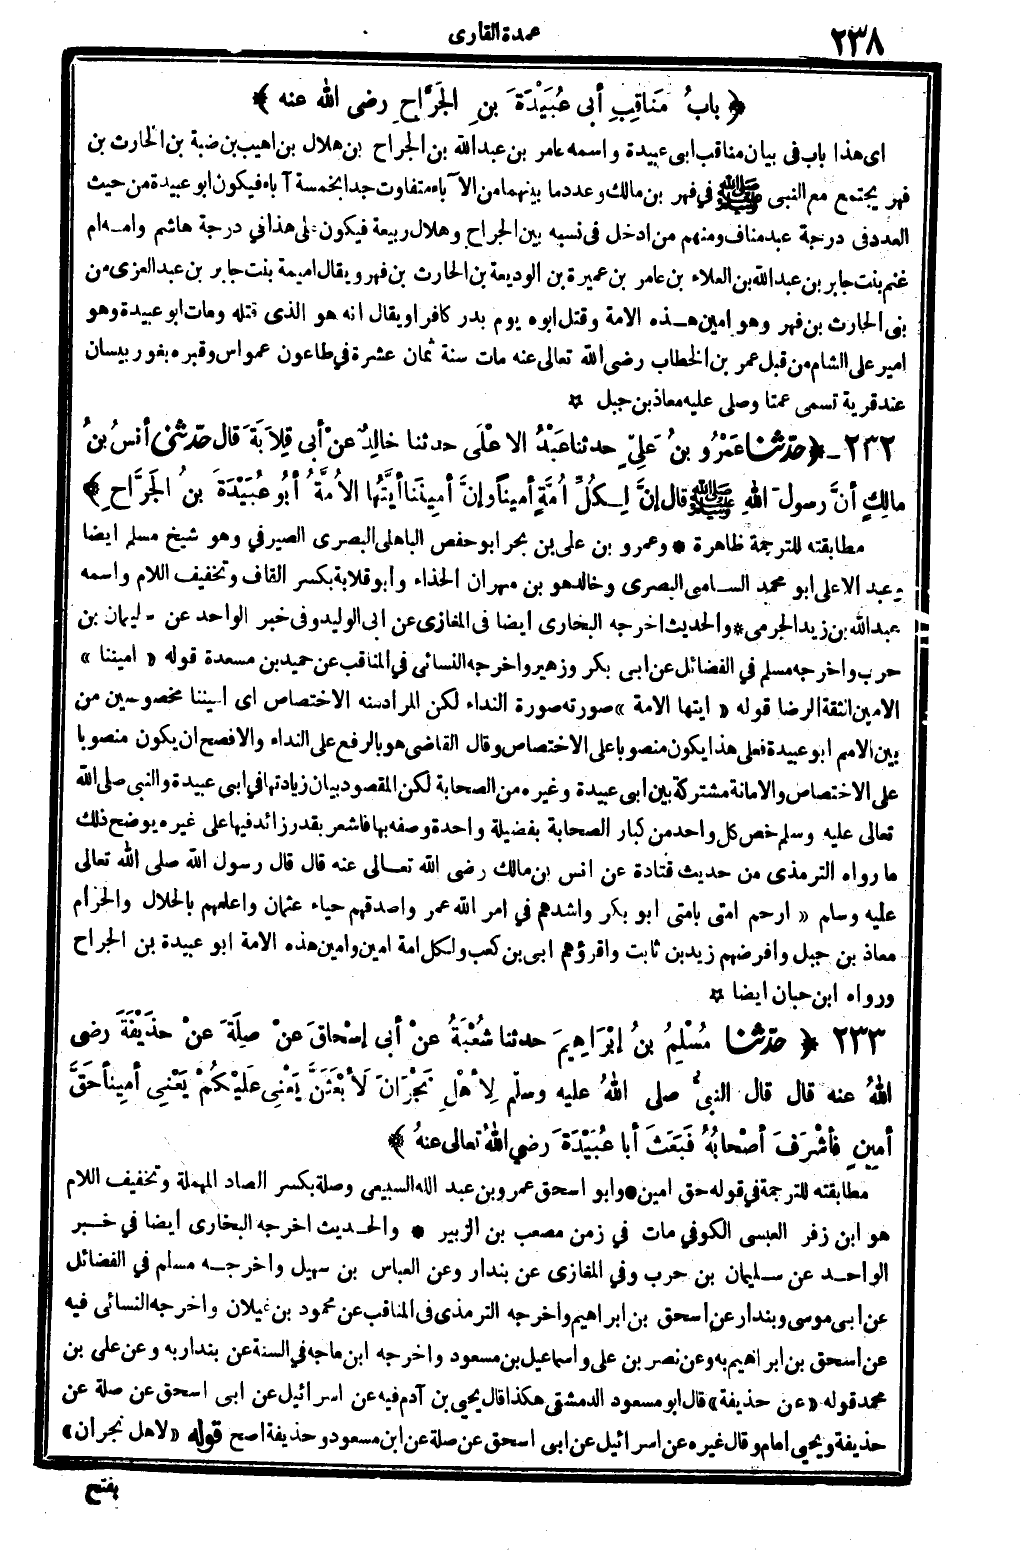 ٢٣٨
عمدة القارى
﴿ بابُ مَناقِبِ أبى عُبَيْدَةَ بنِ الجَرَّاحِ رضى الله عنه ﴾
اى هذا باب فى بيان مناقب ابى عبيدة واسمه عامر بن عبد الله بن الجراح بن هلال بن اهيب بن ضبة بن الحارث بن
فهر يجتمع مع النبى ﷺ في فهر بن مالك وعدد ما بينهما من الآباء متفاوت جدا بخمسة آباء فيكون ابو عبيدة من حيث
العدد فى درجة عبد مناف ومنهم من ادخل فى نسبه بين الجراح وهلال ربيعة فيكون على هذا في درجة هاشم وامه ام
غنم بنت جابر بن عبد الله بن العلاء بن عامر بن عميرة بن الوديعة بن الحارث بن فهر ويقال اميمة بنت جابر بن عبد العزى من
بنى الحارث بن فهر وهو امين هذه الامة وقتل ابوه يوم بدر كافرا ويقال انه هو الذى قتله ومات ابو عبيدة وهو
امير على الشام من قبل عمر بن الخطاب رضى الله تعالى عنه مات سنة ثمان عشرة في طاعون عمواس وقبره بغور بيسان
عند قرية تسمى عمتا وصلى عليه معاذ بن جبل ☆
٢٣٢ - ﴿ حدّثنا عَمْرُو بنُ عَلِيٍّ حدثنا عَبْدُ الاعْلَى حدثنا خالِدٌ عنْ أبى قِلاَبَةَ قال حدّثنى أنسُ بنُ
مالِكٍ أنَّ رسولَ اللهِ ﷺ قال إنَّ لِكُلِّ أُمَّةٍ أمِيناً وإنَّ أمِينَنا أيَّتُها الأُمَّةُ أبُو عُبَيْدَةَ بنُ الجَرَّاحِ ﴾
مطابقته للترجمة ظاهرة * وعمرو بن على بن بحر ابو حفص الباهلى البصرى الصيرفي وهو شيخ مسلم ايضا
وعبد الاعلى ابو محمد السامى البصرى وخالد هو بن مهران الحذاء وابو قلابة بكسر القاف وتخفيف اللام واسمه
عبد الله بن زيد الجرمى * والحديث اخرجه البخارى ايضا فى المغازى عن ابى الوليد وفى خبر الواحد عن سليمان بن
حرب واخرجه مسلم في الفضائل عن ابى بكر وزهير واخرجه النسائى في المناقب عن حميد بن مسعدة قوله « اميننا »
الامين الثقة الرضا قوله « ايتها الامة » صورته صورة النداء لكن المراد منه الاختصاص اى اميننا مخصوصين من
بين الامم ابو عبيدة فعلى هذا يكون منصوبا على الاختصاص وقال القاضى هو بالرفع على النداء والافصح ان يكون منصوبا
على الاختصاص والامانة مشتركة بين ابى عبيدة وغيره من الصحابة لكن المقصود بيان زيادتها في ابى عبيدة والنبى صلى الله
تعالى عليه وسلم خص كل واحد من كبار الصحابة بفضيلة واحدة وصفه بها فاشعر بقدر زائد فيها على غيره يوضح ذلك
ما رواه الترمذى من حديث قتادة عن انس بن مالك رضى الله تعالى عنه قال قال رسول الله صلى الله تعالى
عليه وسلم « ارحم امتى بامتى ابو بكر واشدهم في امر الله عمر واصدقهم حياء عثمان واعلمهم بالحلال والحرام
معاذ بن جبل وافرضهم زيد بن ثابت واقرؤهم ابى بن كعب ولكل امة امين وامين هذه الامة ابو عبيدة بن الجراح
ورواه ابن حبان ايضا ☆
٢٣٣ ﴿ حدّثنا مُسْلِمُ بنُ إبْرَاهِيمَ حدثنا شُعْبَةُ عنْ أبى إسْحاقَ عَنْ صِلَةَ عنْ حذَيْفَةَ رضى
اللهُ عنه قال قال النبىُّ صلى اللهُ عليه وسلّم لِأهْلِ نَجْرَانَ لَأبْعَثَنَّ يَعْنِى عَلَيْكُمْ يَعْنِى أمِيناً حَقَّ
أمِينٍ فأشْرَفَ أصْحابُهُ فَبَعَثَ أبا عُبَيْدَةَ رضي اللهُ تعالى عنهُ ﴾
مطابقته للترجمة في قوله حق امين * وابو اسحق عمرو بن عبد الله السبيعى وصلة بكسر الصاد المهملة وتخفيف اللام
هو ابن زفر العبسى الكوفي مات في زمن مصعب بن الزبير * والحديث اخرجه البخارى ايضا في خبر
الواحد عن سليمان بن حرب وفي المغازى عن بندار وعن العباس بن سهيل واخرجه مسلم في الفضائل
عن ابى موسى وبندار عن اسحق بن ابراهيم واخرجه الترمذى فى المناقب عن محمود بن غيلان واخرجه النسائى فيه
عن اسحق بن ابراهيم به وعن نصر بن على واسماعيل بن مسعود واخرجه ابن ماجه في السنة عن بندار به وعن على بن
محمد قوله « عن حذيفة » قال ابو مسعود الدمشقى هكذا قال يحيى بن آدم فيه عن اسرائيل عن ابى اسحق عن صلة عن
حذيفة ويحيى امام وقال غيره عن اسرائيل عن ابى اسحق عن صلة عن ابن مسعود وحذيفة اصح قوله « لاهل نجران »
بفتح